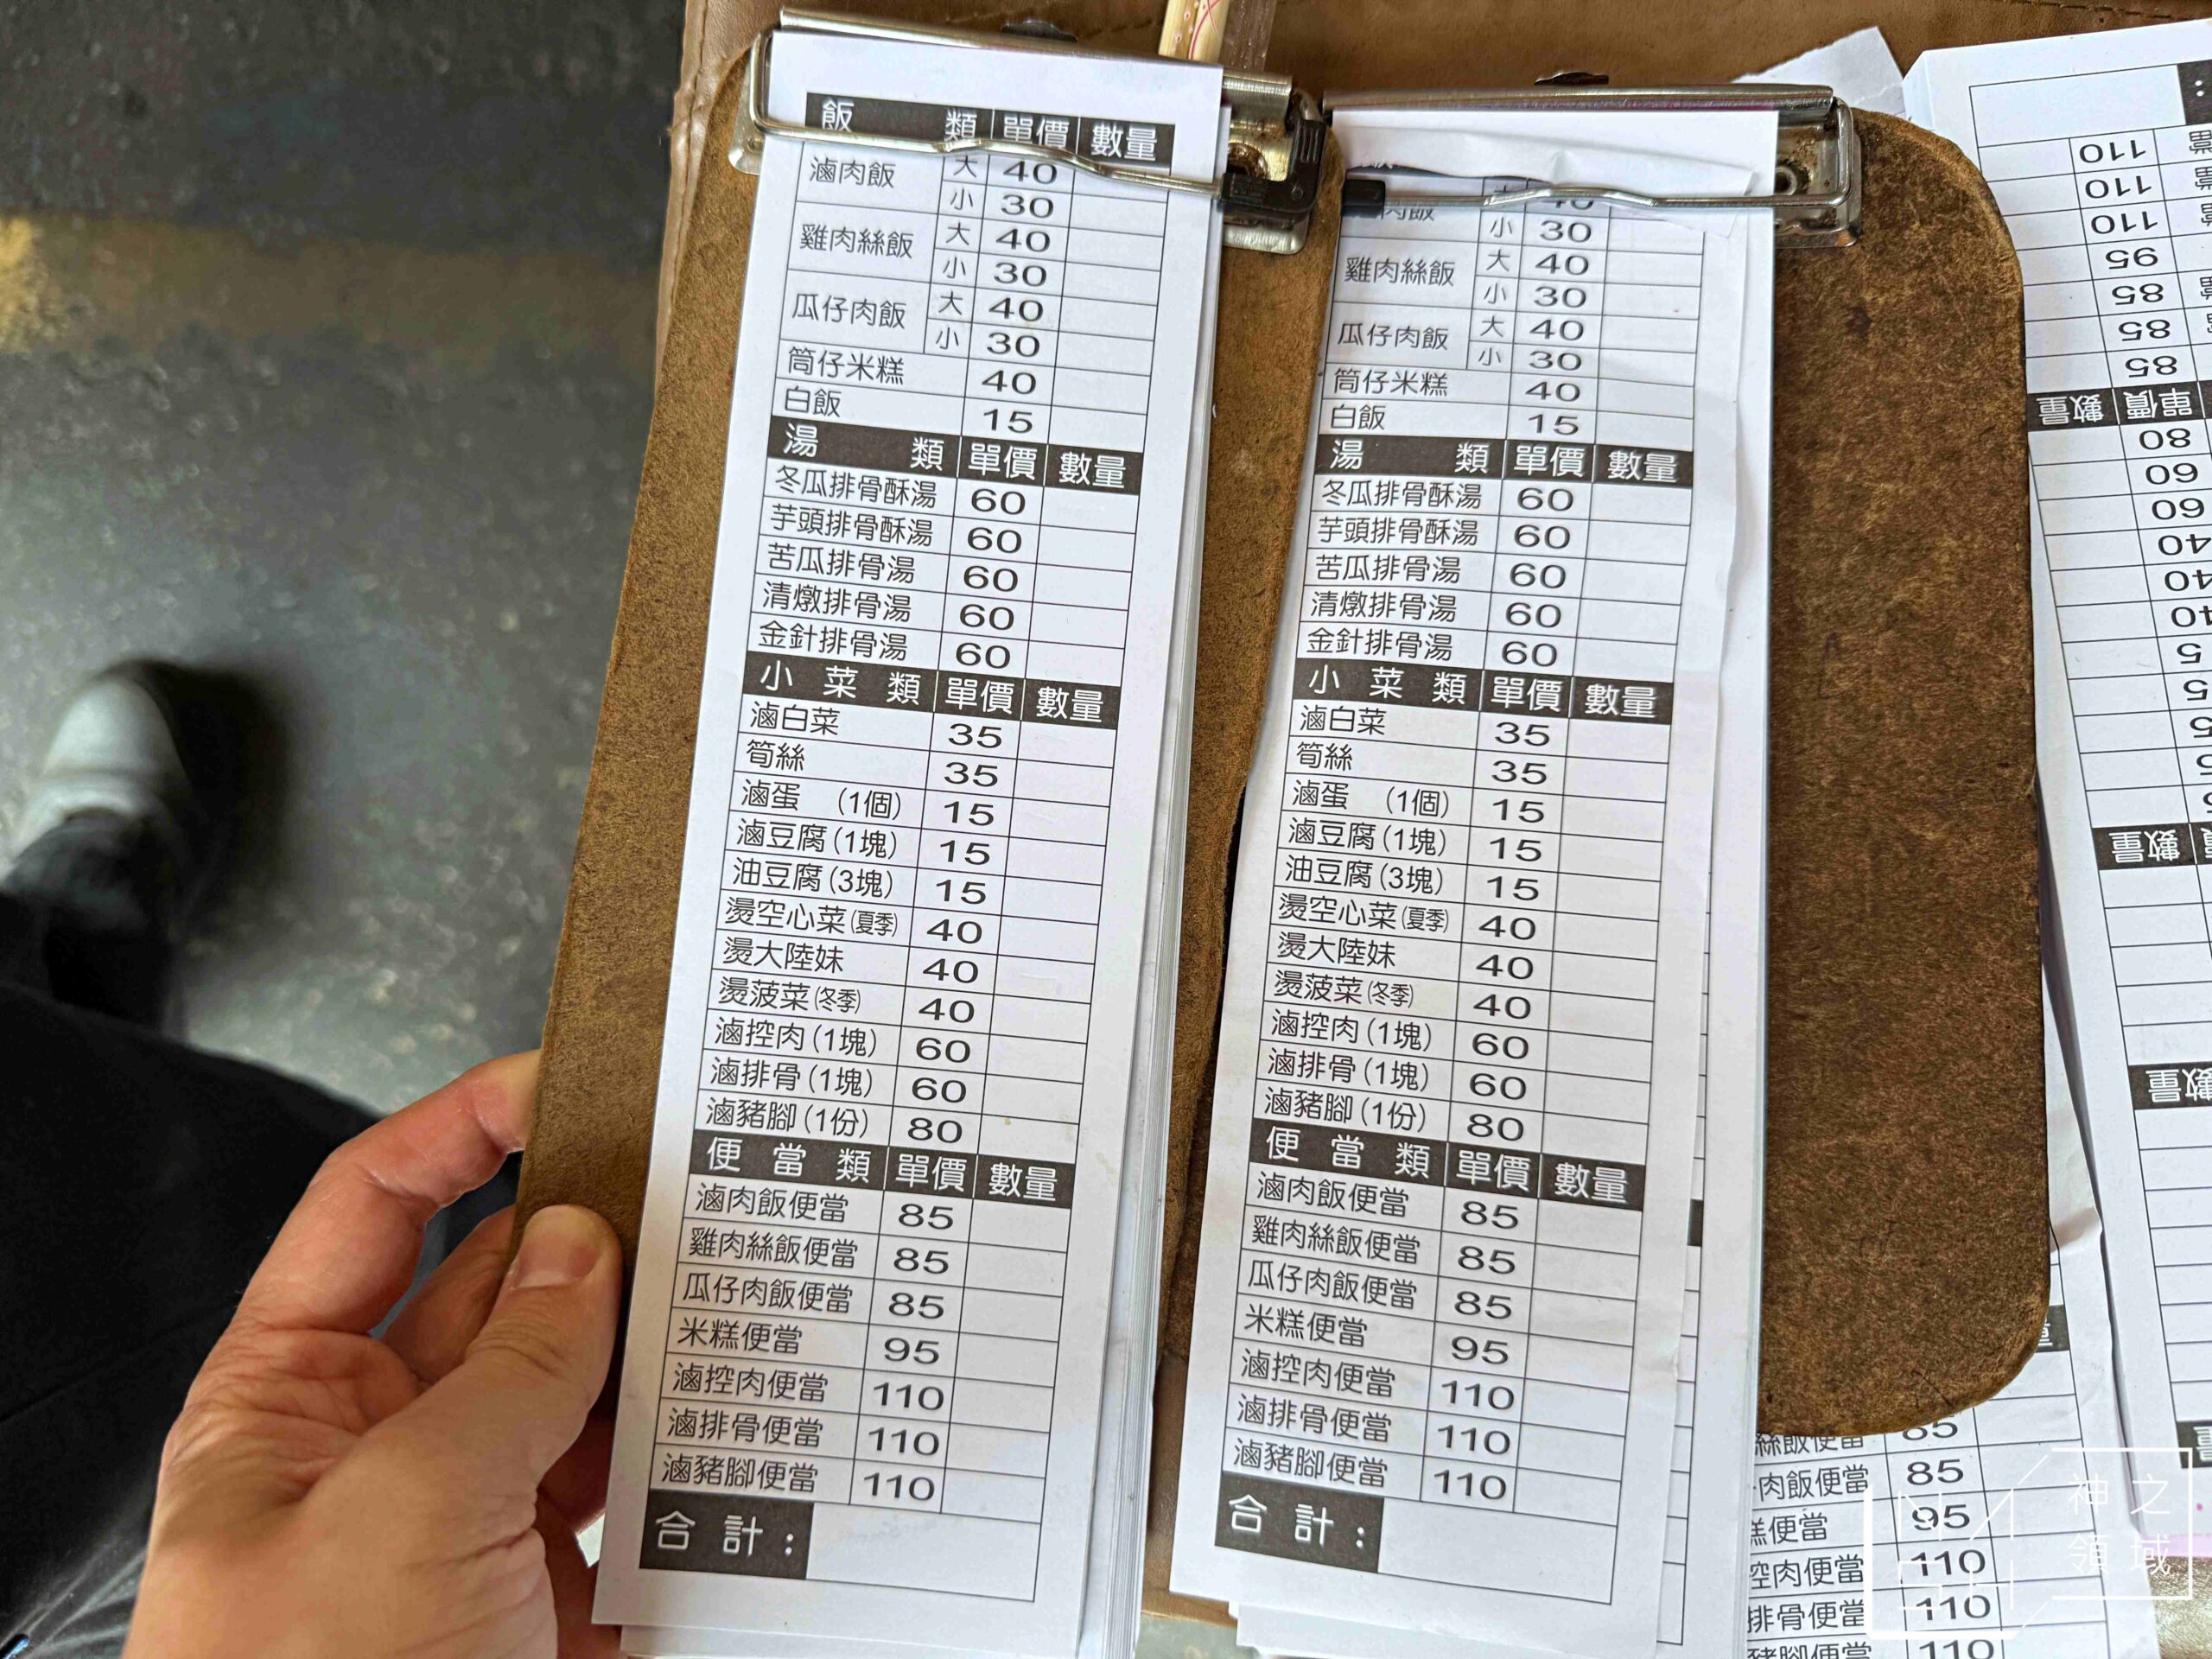 飯 類 單價 數量
滷肉飯 大 40
小 30
雞肉絲飯 大 40
小 30
瓜仔肉飯 大 40
小 30
筒仔米糕 40
白飯 15
湯 類 單價 數量
冬瓜排骨酥湯 60
芋頭排骨酥湯 60
苦瓜排骨湯 60
清燉排骨湯 60
金針排骨湯 60
小菜類 單價 數量
滷白菜 35
筍絲 35
滷蛋 (1個) 15
滷豆腐(1塊) 15
油豆腐(3塊) 15
燙空心菜(夏季) 40
燙大陸妹 40
燙菠菜(冬季) 40
滷控肉(1塊) 60
滷排骨(1塊) 60
滷豬腳(1份) 80
便當類 單價 數量
滷肉飯便當 85
雞肉絲飯便當 85
瓜仔肉飯便當 85
米糕便當 95
滷控肉便當 110
滷排骨便當 110
滷豬腳便當 110
合計:
肉飯 40
小 30
雞肉絲飯 大 40
小 30
瓜仔肉飯 大 40
小 30
筒仔米糕 40
白飯 15
湯 類 單價 數量
冬瓜排骨酥湯 60
芋頭排骨酥湯 60
苦瓜排骨湯 60
清燉排骨湯 60
金針排骨湯 60
小菜類 單價 數量
滷白菜 35
筍絲 35
滷蛋 (1個) 15
滷豆腐(1塊) 15
油豆腐(3塊) 15
燙空心菜(夏季) 40
燙大陸妹 40
燙菠菜(冬季) 40
滷控肉(1塊) 60
滷排骨(1塊) 60
滷豬腳(1份) 80
便當類 單價 數量
滷肉飯便當 85
雞肉絲飯便當 85
瓜仔肉飯便當 85
米糕便當 95
滷控肉便當 110
滷排骨便當 110
滷豬腳便當 110
合計:
絲飯便當 85
肉飯便當 85
糕便當 95
控肉便當 110
排骨便當 110
豬腳便當 110
110
110
110
95
85
85
85
單價 數量
80
60
60
40
40
40
數量
數量
神之
領域